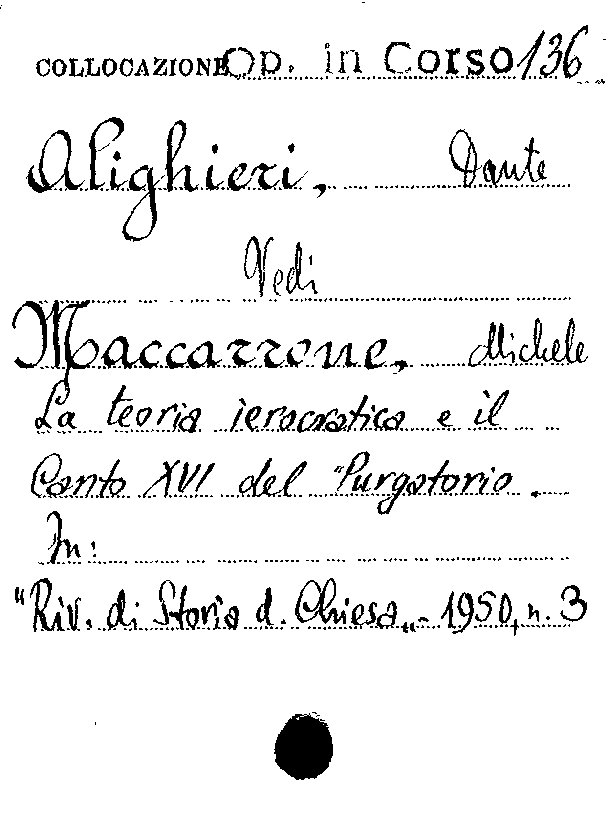 COLLOCAZIONE Op. in Corso 136
Alighieri, Dante
Vedi
Maccarrone, Michele
La teoria ierocratica e il
Canto XVI del "Purgatorio.
In:
"Riv. di Storia d. Chiesa„ - 1950, n. 3